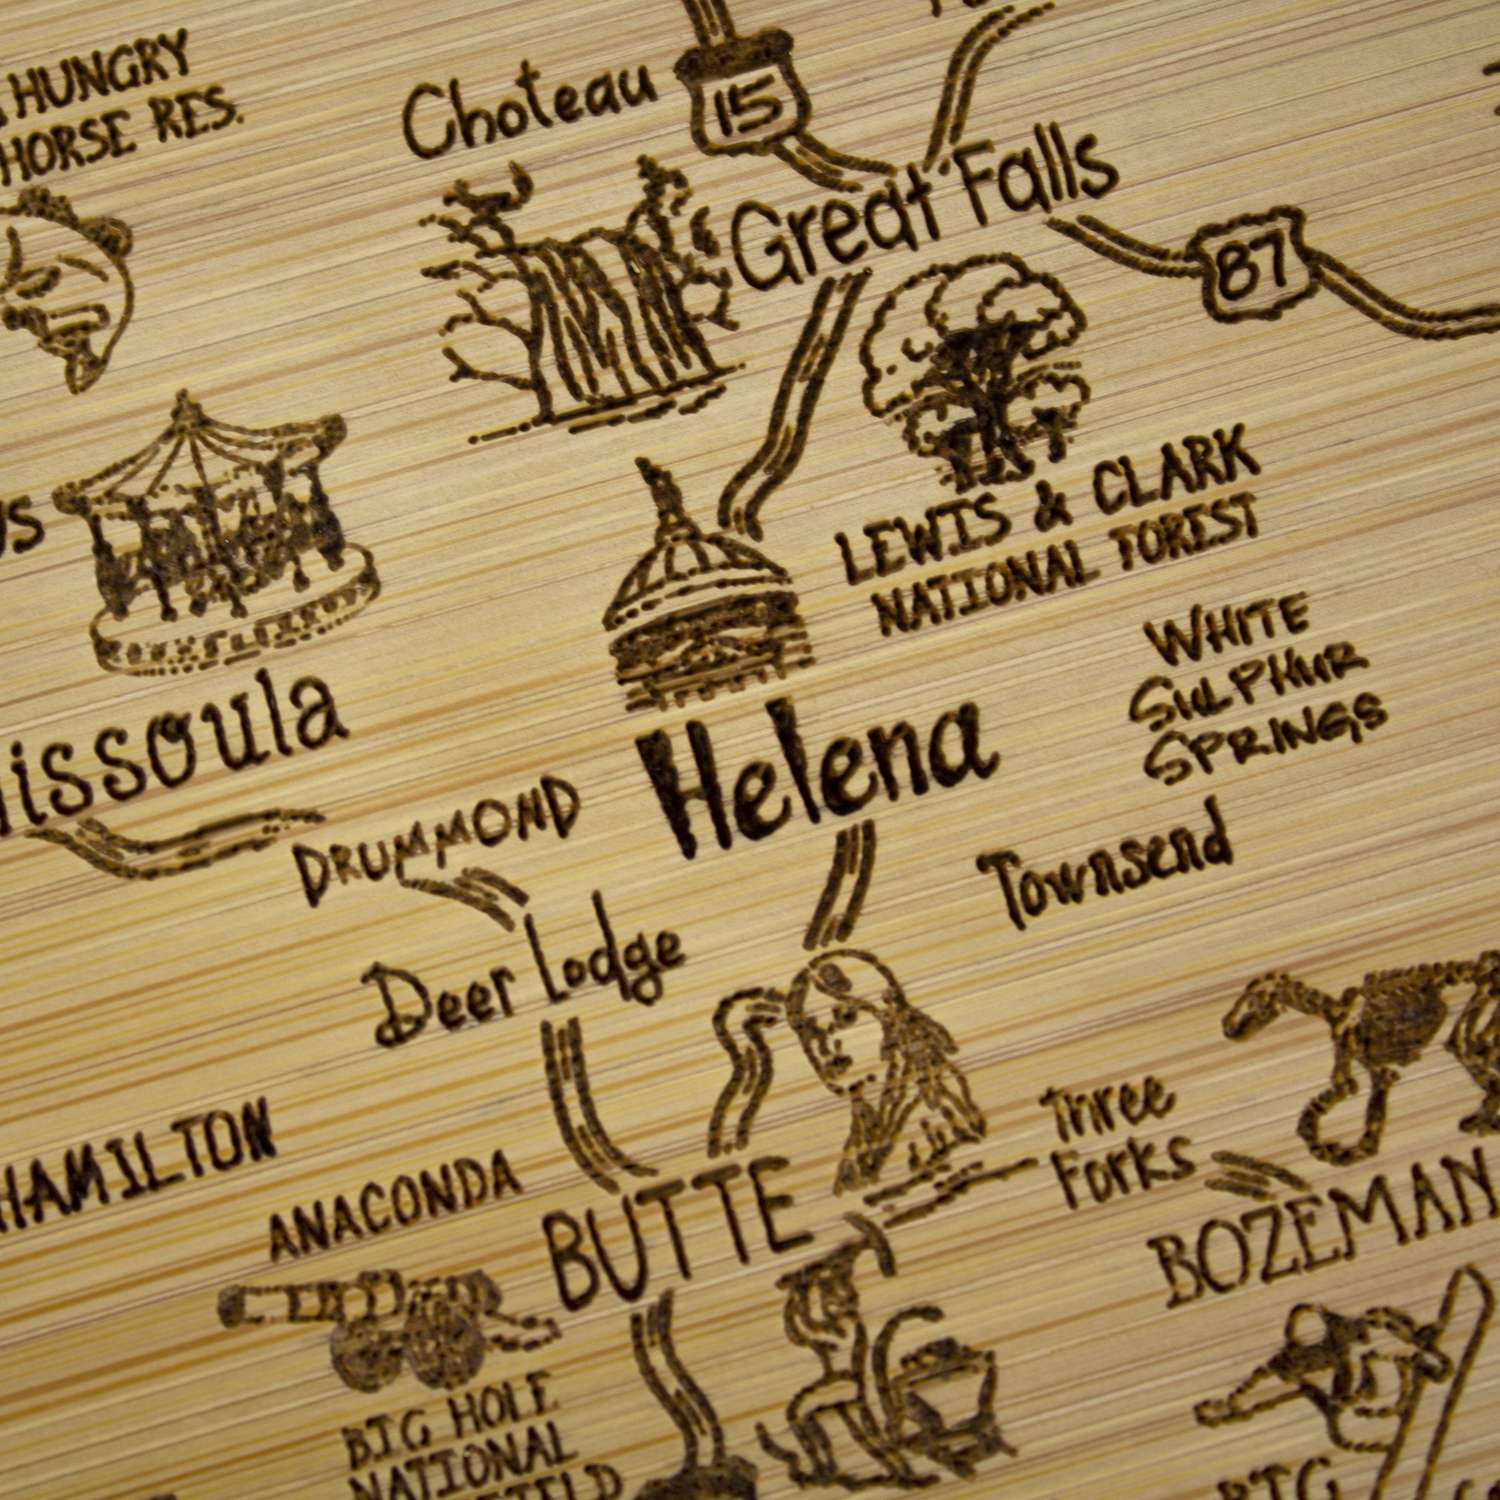 HUNGRY
HORSE RES.
Choteau
15
Great Falls
87
LEWIS & CLARK
NATIONAL FOREST
WHITE
SULPHUR
SPRINGS
issoula
Helena
DRUMMOND
Townsend
Deer Lodge
Three
Forks
HAMILTON
ANACONDA
BUTTE
BOZEMAN
BIG HOLE
NATIONAL
BIG